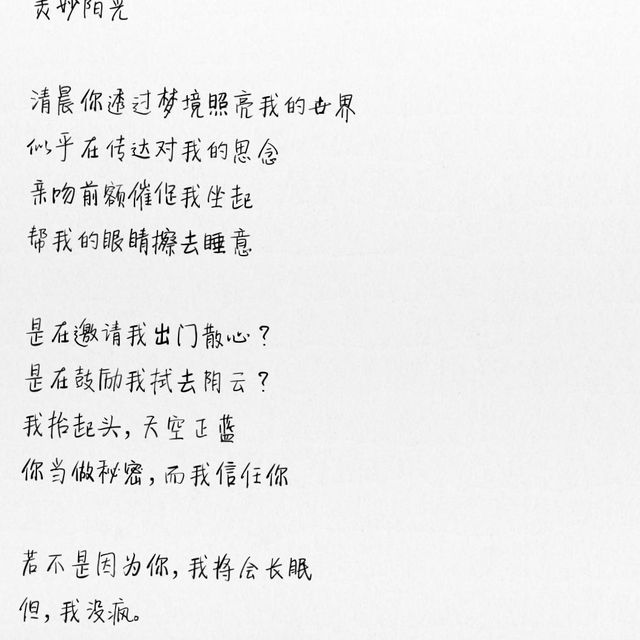 美妙阳光
清晨你透过梦境照亮我的世界
似乎在传达对我的思念
亲吻前额催促我坐起
帮我的眼睛擦去睡意
是在邀请我出门散心？
是在鼓励我拭去阴云？
我抬起头，天空正蓝
你当做秘密，而我信任你
若不是因为你，我将会长眠
但，我没疯。